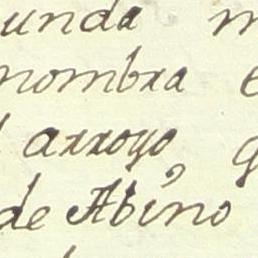 unda m
nombra e
arroyo, q
de Abino